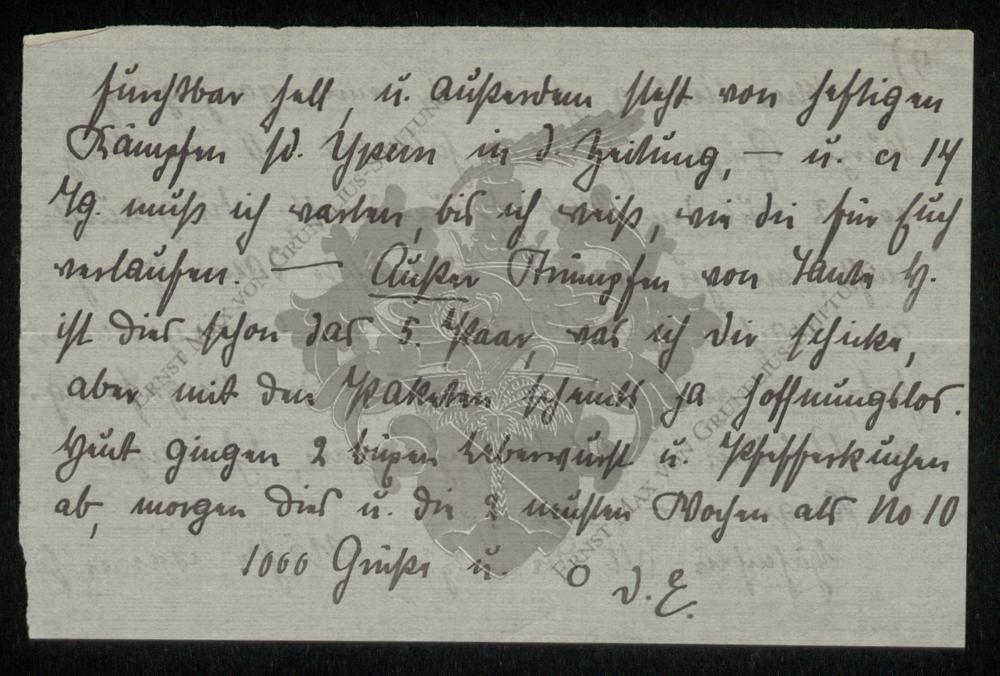 furchtbar hell, u. außerdem steht von heftigen
Kämpfen sd. Ypern in d Zeitung, — u. ca 14
Tg. muß ich warten, bis ich weiß, wie die für Euch
verlaufen. — Außer Strümpfen von Tante H.
ist dies schon das 5. Paar, was ich dir schicke,
aber mit den Paketen scheints ja hoffnungslos.
Heut gingen 2 büxen Leberwurst u. Pfefferkuchen
ab, morgen dies u. die 2 neusten Wochen als No 10
1000 Grüße u. O D. E.
ERNST MAX VON GRUNELIUS-STIFTUNG
ERNST MAX VON GRUNELIUS-STIFTUNG